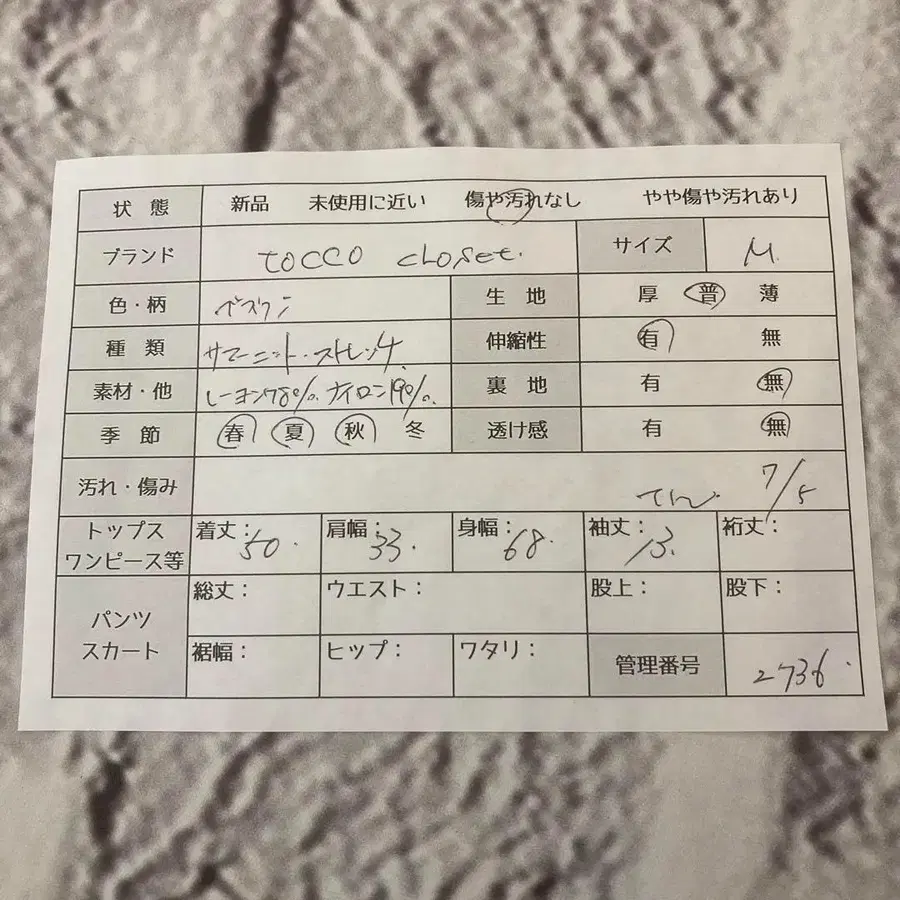 状態 新品 未使用に近い 傷や汚れなし やや傷や汚れあり
ブランド tocco closet. サイズ M.
色・柄 生地 厚 普 薄
種類 サマーニット・ストレッチ 伸縮性 有 無
素材・他 レーヨン78%. ナイロン19%. 裏地 有 無
季節 春 夏 秋 冬 透け感 有 無
汚れ・傷み 7/5
トップス ワンピース等 着丈：50. 肩幅：33. 身幅：68. 袖丈：13. 裄丈：
パンツ スカート 総丈： ウエスト： 股上： 股下：
裾幅： ヒップ： ワタリ： 管理番号 2736.